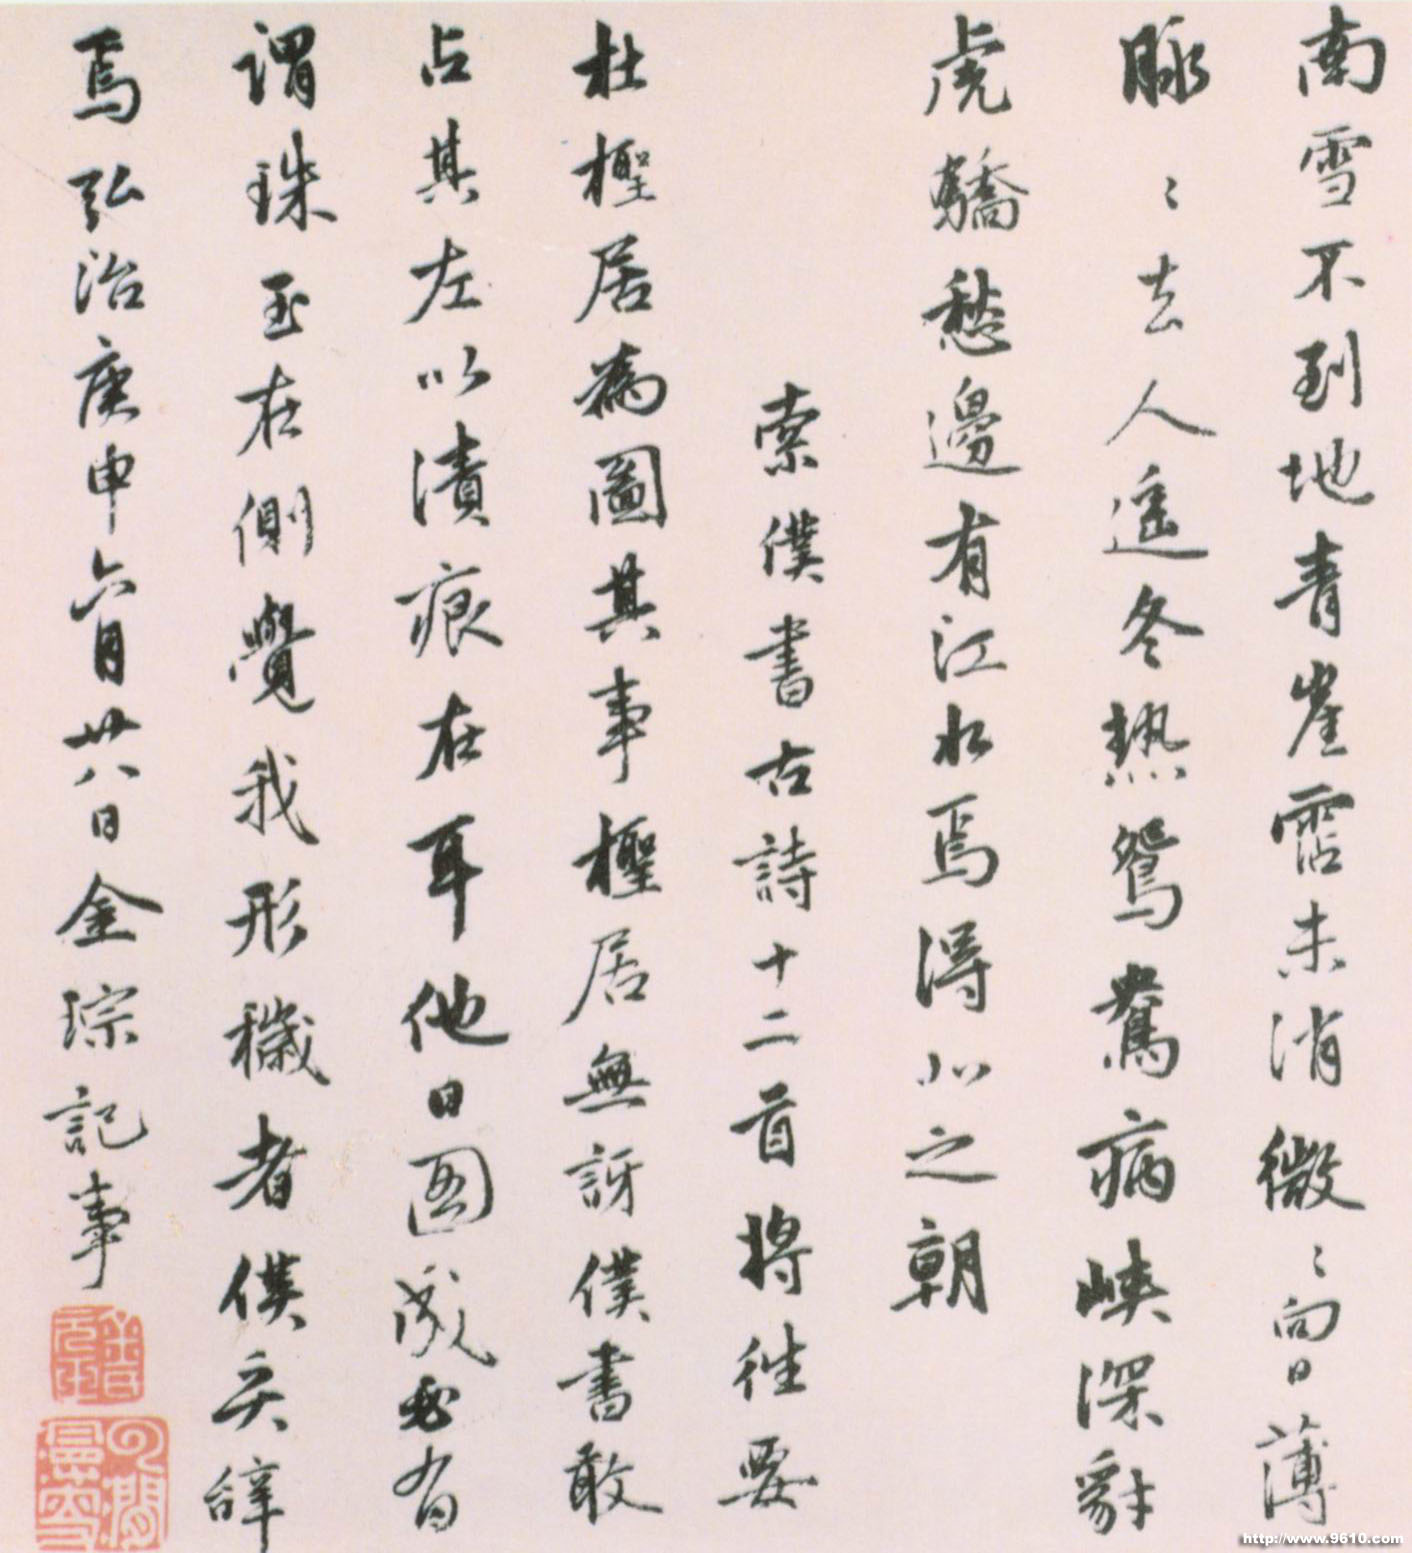 南雪不到地青崖霑未消微〻向日薄
脉〻去人遥冬熱鴛鴦病峡深豺
虎驕愁邊有江水焉得北之朝
索僕書古詩十二首將徃要
杜檉居為圖其事檉居無訝僕書敢
占其左以漬痕在耳他日圖成必有
謂珠玉在側覺我形穢者僕奚辞
焉弘治庚申六月廿八日金琮記事
http://www.9610.com